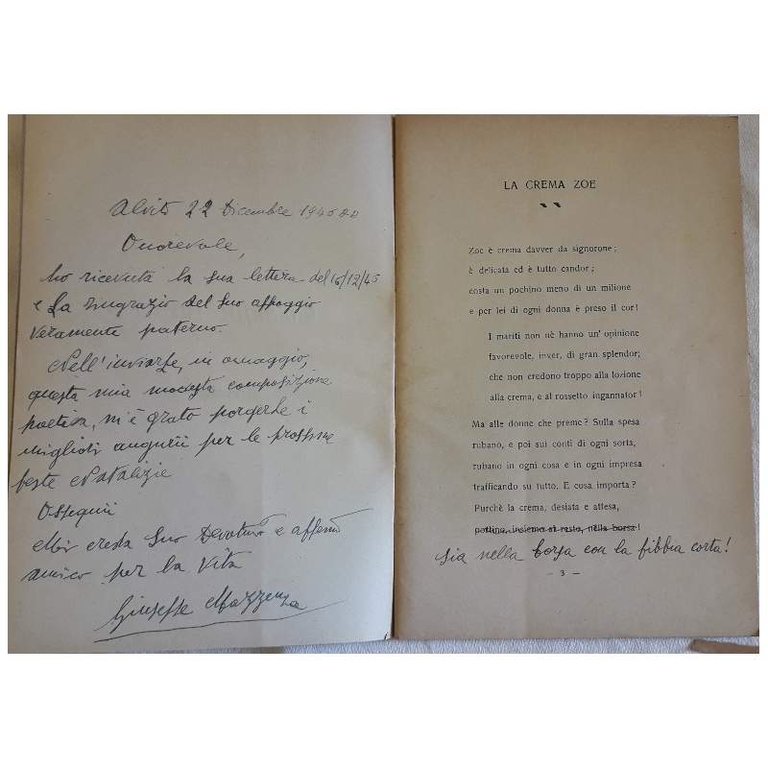 Alvito 22 Dicembre 1945
Onorevole,
ho ricevuta la sua lettera del 16/12/45
e La ringrazio del Suo appoggio
veramente paterno.
Nell'inviarle, in omaggio,
questa mia modesta composizione
poetica, m'è grato porgerle i
migliori augurii per le prossime
feste Natalizie
Ossequii
Mi creda Suo Devotmo e affemo
amico per la vita
Giuseppe Mazzenza
LA CREMA ZOE
Zoe è crema davver da signorone;
è delicata ed è tutto candor;
costa un pochino meno di un milione
e per lei di ogni donna è preso il cor!
I mariti non nè hanno un' opinione
favorevole, inver, di gran splendor;
che non credono troppo alla lozione
alla crema, e al rossetto ingannator!
Ma alle donne che preme? Sulla spesa
rubano, e poi sui conti di ogni sorta,
rubano in ogni cosa e in ogni impresa
trafficando su tutto. E cosa importa?
Purchè la crema, desiata e attesa,
pottino, insieme al resto, nella borsa!
sia nella borsa con la fibbia corta!
— 3 —